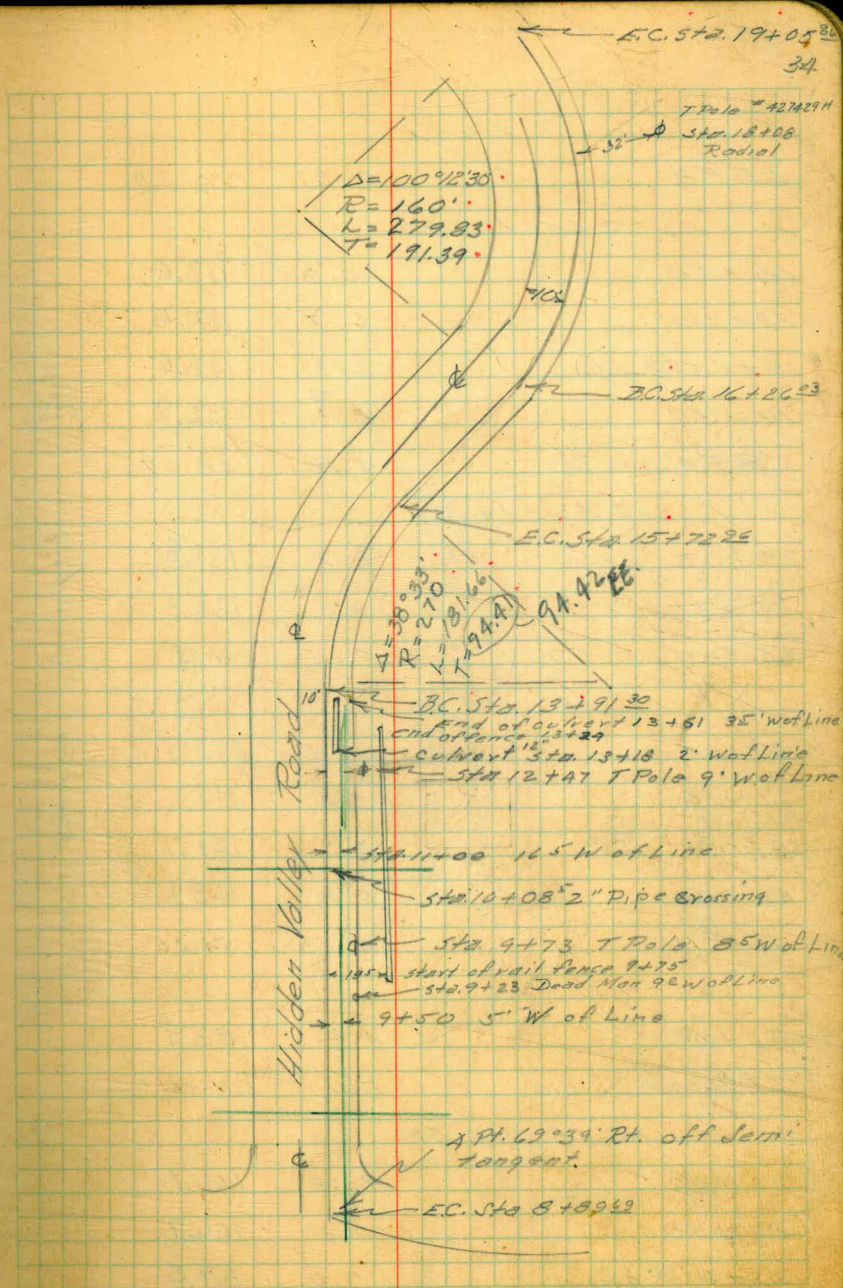 E.C. Sta. 19+05 86
34
T Pole # 427429H
Sta. 18+08
Radial
32'
Δ=100°12'30"
R= 160'
L= 279.83
T= 191.39
10'
℄
B.C. Sta. 16+26 03
E.C. Sta. 15+72 96
Δ=38°33'
R=270
L=181.66
T=94.41
94.42 EE.
10'
B.C. Sta. 13+91 30
End of culvert 13+61 35' W of Line
end of fence 13+29
culvert 12" Sta. 13+18 2' W of Line
Sta 12+47 T Pole 9' W of Line
Sta. 11+00 16 5 W of Line
Sta. 10+08 5 2" Pipe Crossing
Sta. 9+73 T Pole 8 5 W of Line
start of rail fence 9+75
Sta. 9+23 Dead Man 9 2 W of Line
9+50 5' W of Line
Hidden Valley Road
∡ Pt. 69°39' Rt. off Semi
tangent.
℄
E.C. Sta 8+89 69